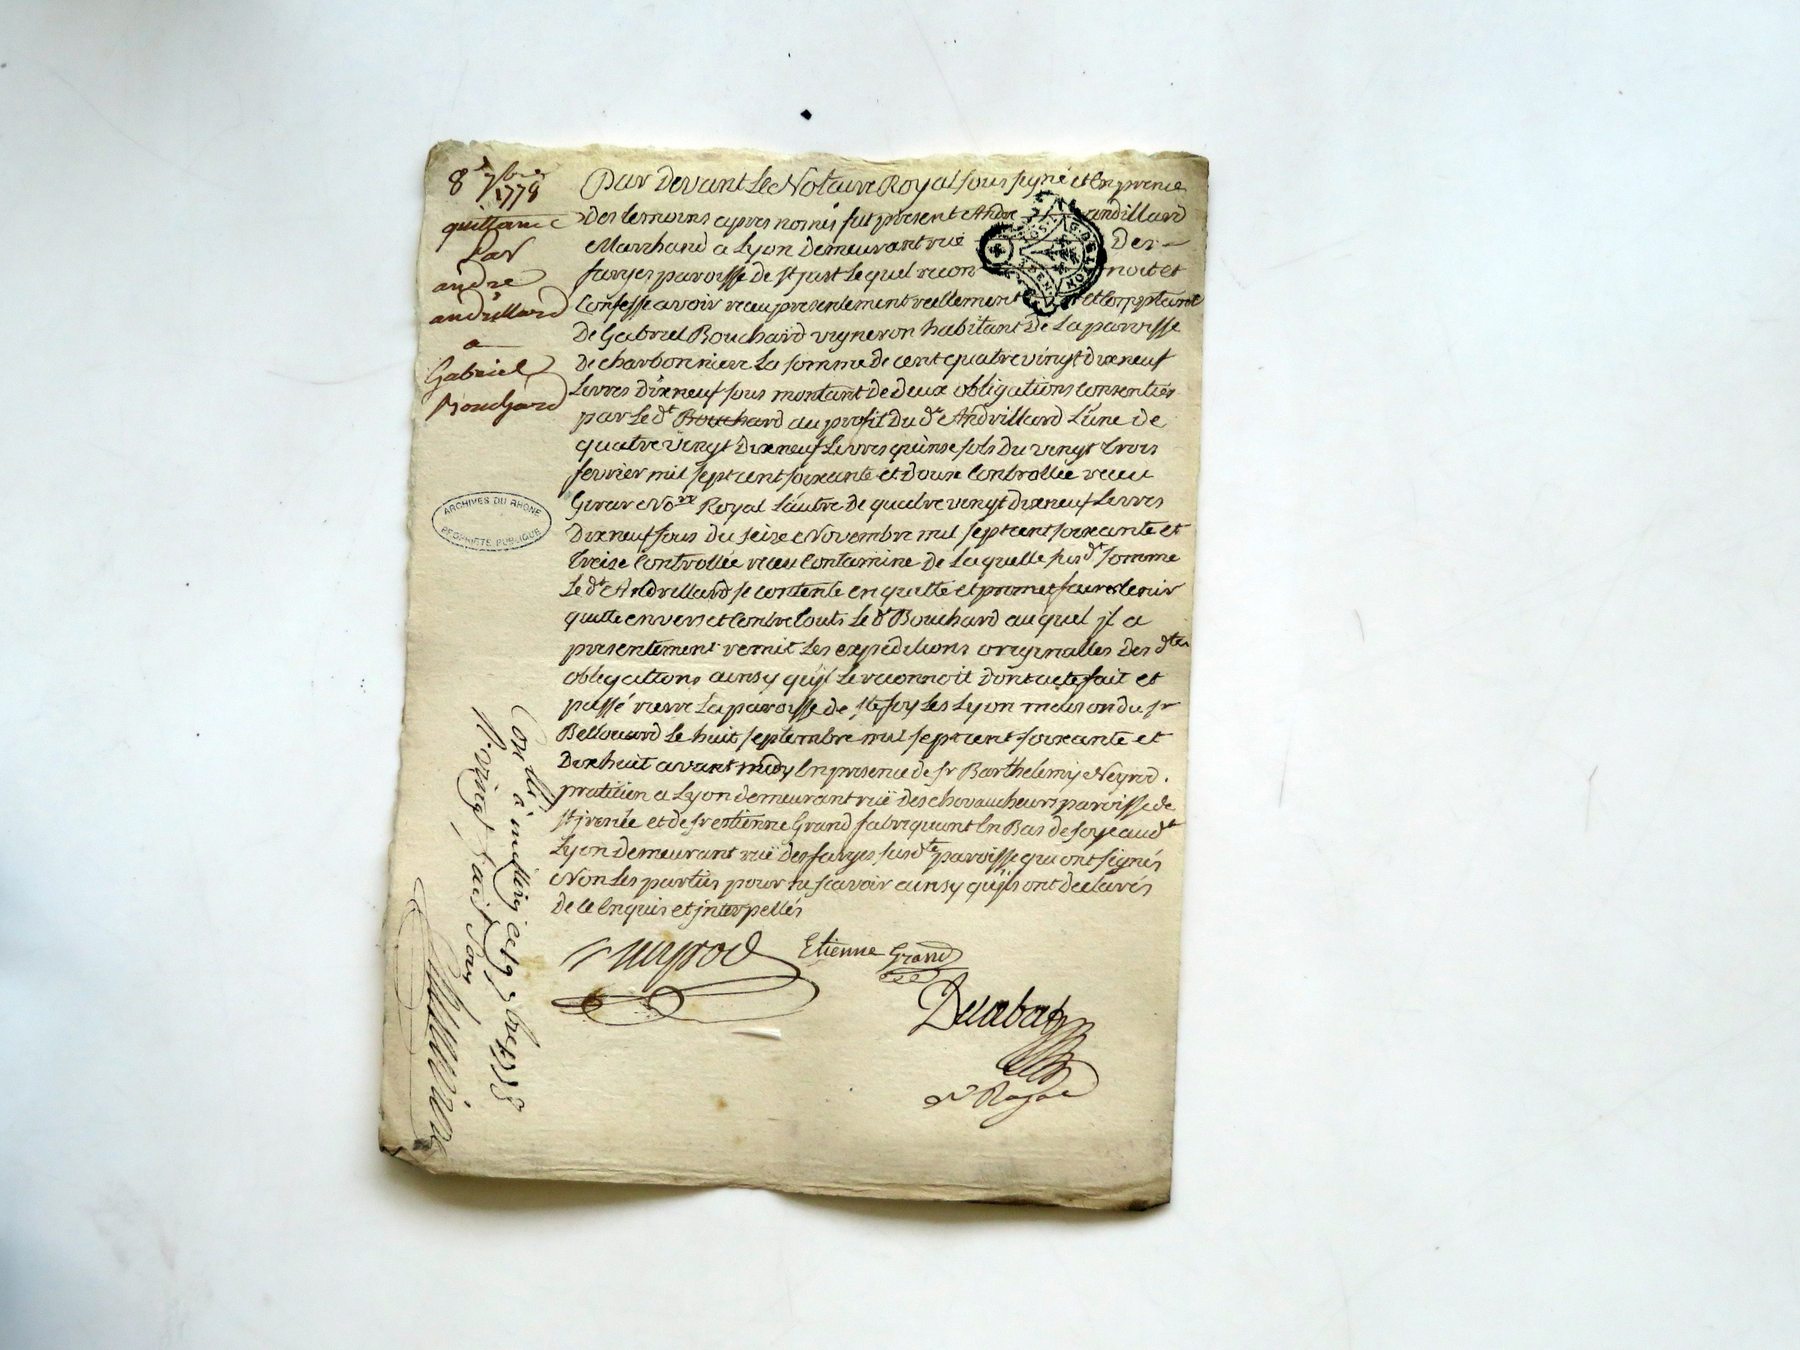 8e 7bre
1778
quittance
Par
andré
andrillard
a
Gabriel
Bouchard
Par Devant Le Notaire Royal sous signé et En presence
Des temoins apres només fut present André andrillard
Marchand a Lyon Demeurant rue Des
farges paroisse de st just Lequel reconnoit et
Confesse avoir receu presentement reellement et Comptant
De Gabriel Bouchard vigneron habitant De La paroisse
De charbonniere La somme de cent quatre vingt dixneuf
Livres Dixneuf sous montant De deux obligations consenties
par Le dt Bouchard au profit Du dt Andrillard L'une de
quatre vingt Dixneuf Livres quinse sols Du vingt trois
fevrier mil sept cent soixante et Douse Controllée receu
Girar No.re Royal L'autre De quatre vingt dixneuf Livres
Dixneuf sous Du seise Novembre mil sept cent soixante et
treise Controllée receu Contamine De Laquelle susdt somme
Le dt Andrillard se contente en quitte et promet faire tenir
quitte envers et Contre touts Le dt Bouchard au quel il a
presentement remit Les expeditions originalles Des dtes
obligations ainsy qu'il Le reconnoit Dont acte fait et
passé riere La paroisse De ste foy Les Lyon maison du sr
Bellouard Le huit septembre mil sept cent soixante et
Dixhuit avant midy En presence de sr Barthelemy Neyrod
pratitien a Lyon demeurant rüe Des chevaucheurs paroisse de
st jrenée et de sr estienne Grand fabriquant En Bas de soye aud.t
Lyon Demeurant rüe Des farges susdte paroisse qui ont signés
Non Les parties pour ne scavoir ainsy qu'ils ont declarés
De ce Enquis et jnterpellés
Neyrod
Etienne Grand
Delabat
Nre Royal
ARCHIVES DU RHONE
PROPRIETE PUBLIQUE
G. DE LYON